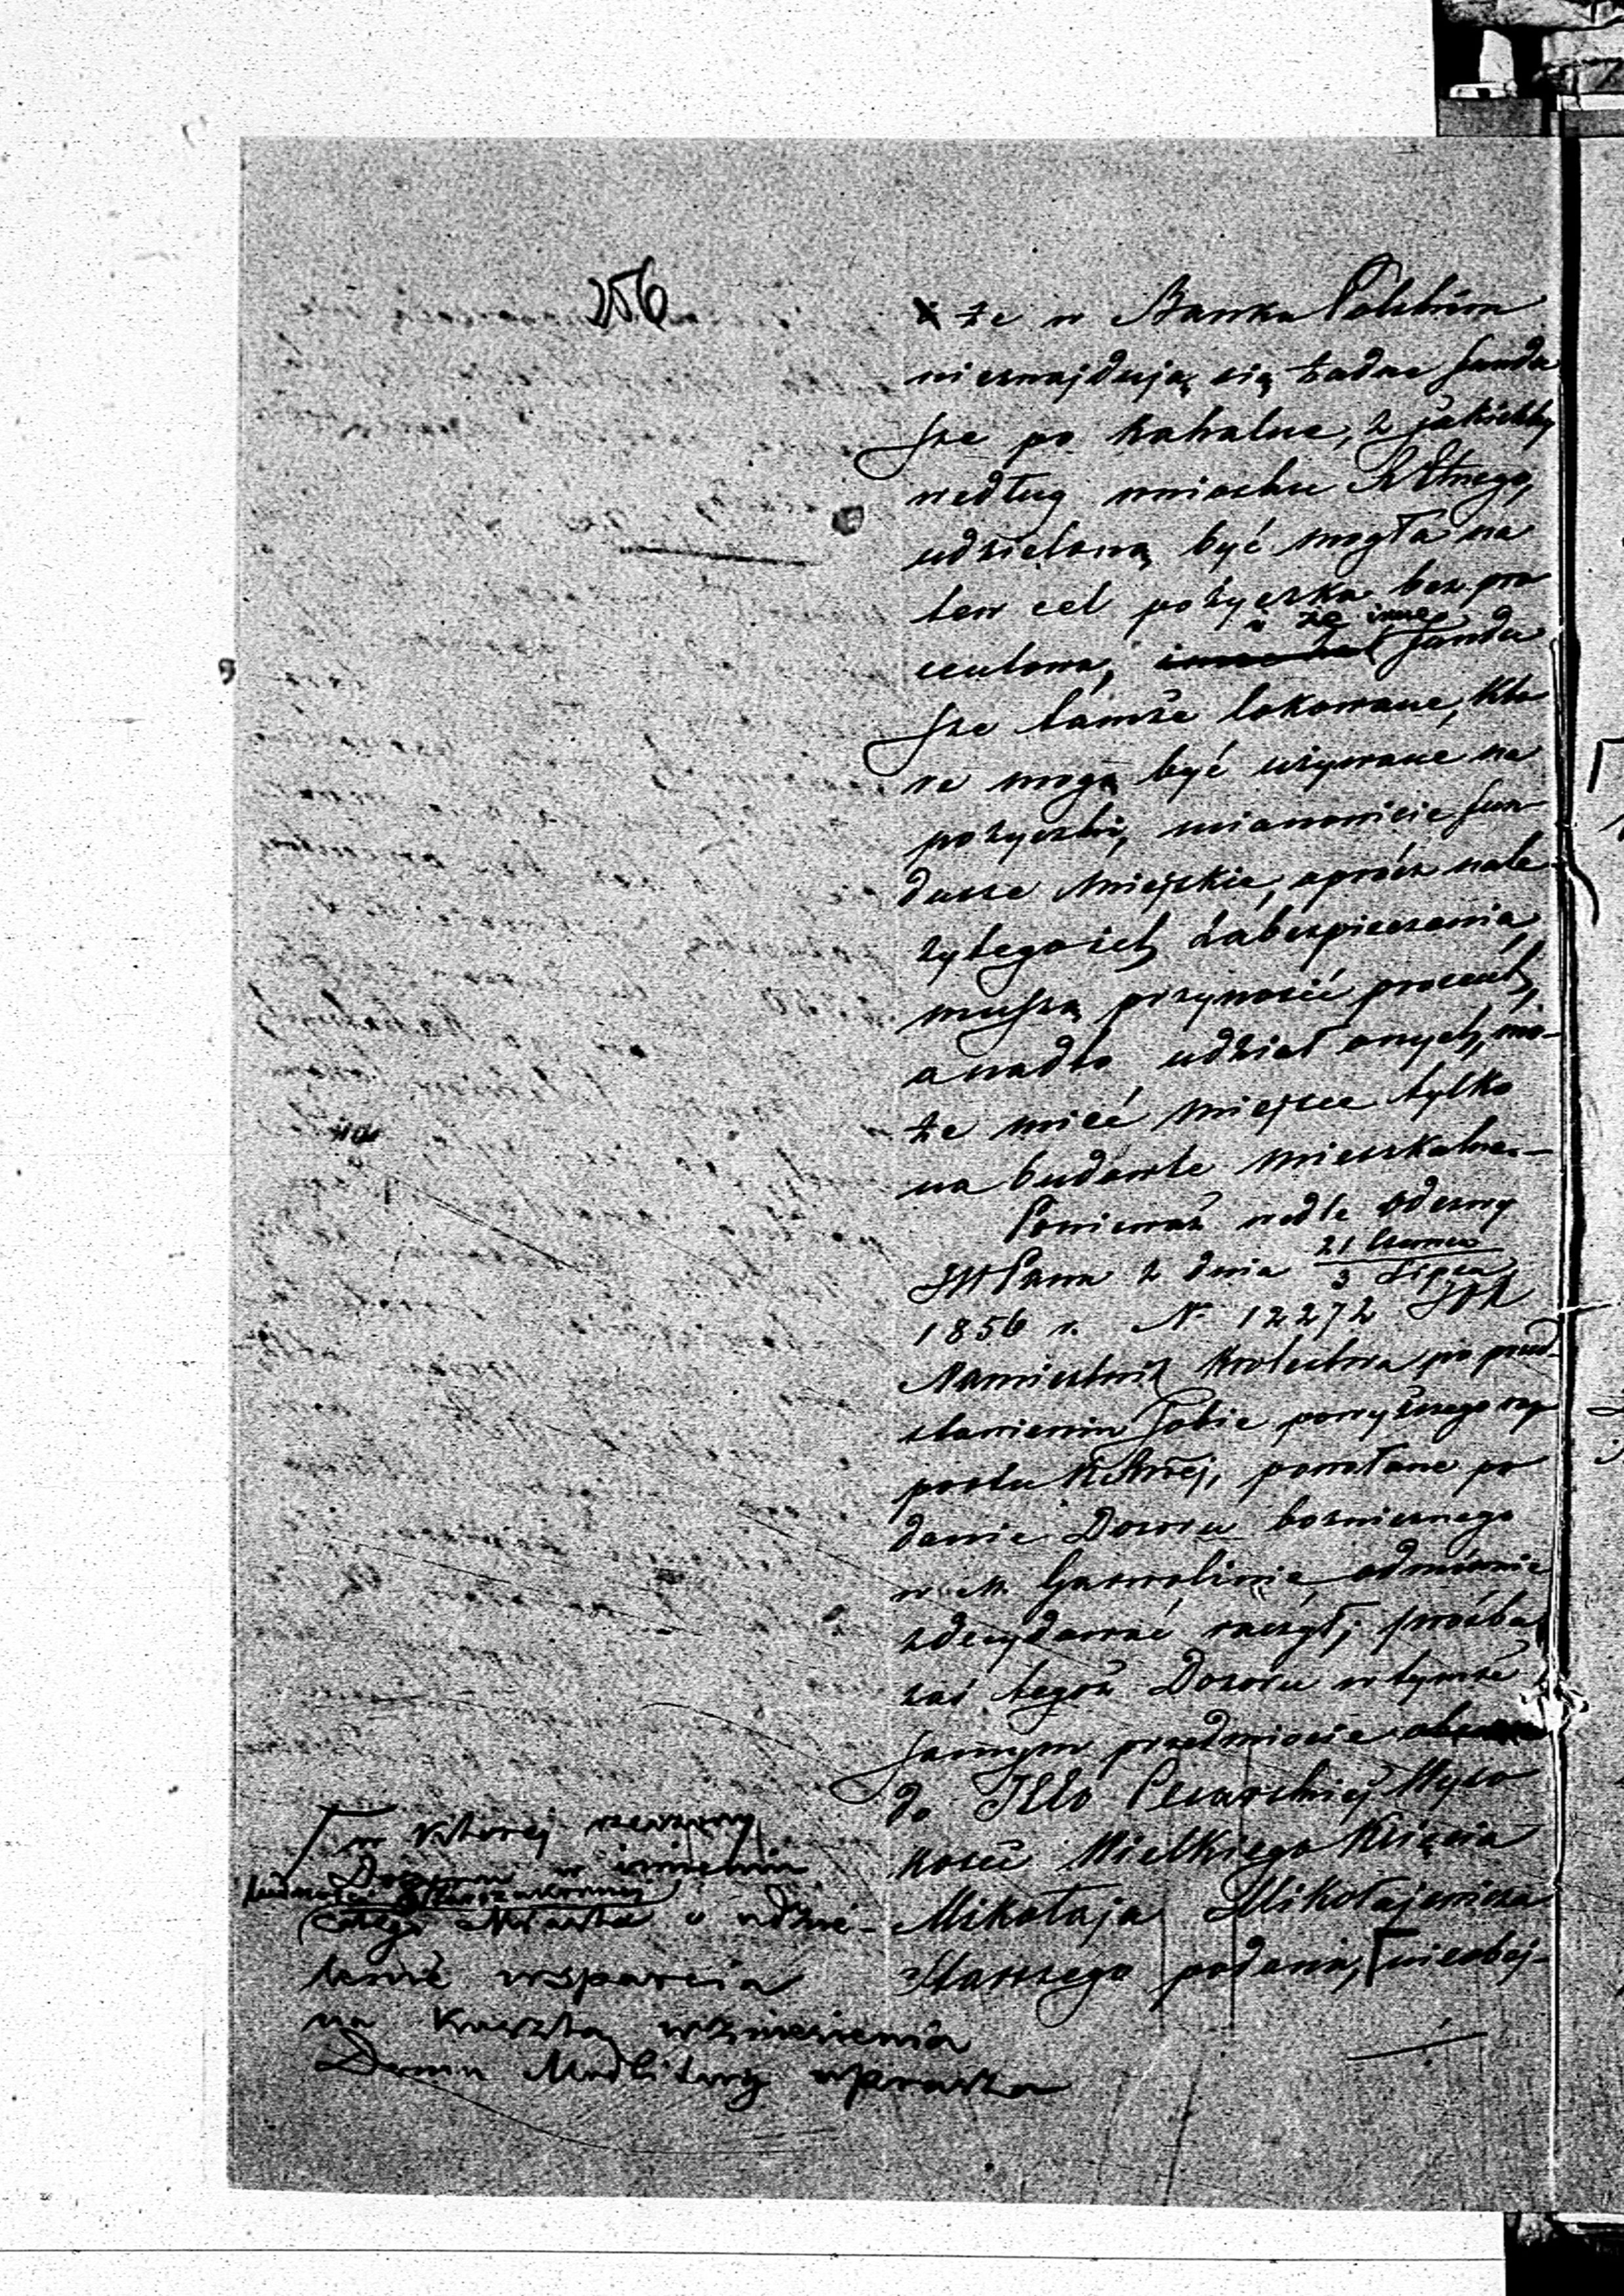 256
że w Banku Polskim
nieznajdują się żadne fundu
sze po kahalne, z jakichby
według wniosku
udzieloną być mogła na
ten cel pożyczka bez pro
centowa, i że inne fundu
sze tamże lokowane, któ
re mogą być używane na
pożyczki, mianowicie fun-
dusze Miejskie, oprócz nale-
żytego ich zabezpieczenia
muszą przynosić procent,
a nadto udział onych, mo-
że mieć miejsce tylko
na budowle mieszkalne.—
Ponieważ wedle odezwy
JW Pana z dnia 21 Czerwca / 3 Lipca
1856 r. N. 12272 JO
Namiestnik Królestwa po przed-
stawieniu Sobie powyższego rap
portu powołane po
danie Dozoru bożniczego
w m. Garwolinie odmównie
zdecydować raczył; prośba
zaś tegoż Dozoru w tymże
samym przedmiocie
do JEgo Cesarskiej Wyso
kości Wielkiego Księcia
Mikołaja Mikołajewicza
Starszego podana, nieobej-
w której rzeczony
Dozoru w imieniu
ludności Starozakonnej
całego Miasta o udzie-
lenie wsparcia
na koszta wzniesienia
Domu Modlitwy uprasza